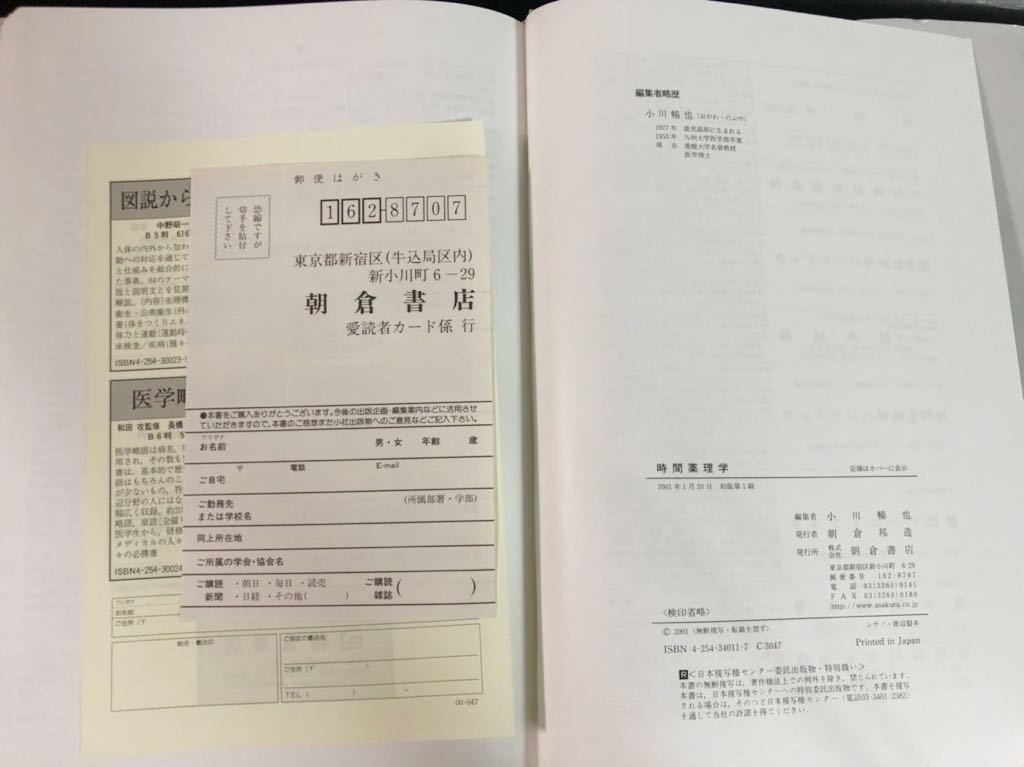 図説から
中野昭一
B5判 616
人体の内外から加わ
動への対応を通じて
と仕組みを総合的に
た事典。84のテーマ
版と説明文とを見開
解説。〔内容〕生理機
衛生・公衆衛生(外
要)体をつくりエネ
体力と運動(運動時
床検査/疾病(種々
ISBN4-254-30023-
医学略
和田 攻監修 長橋
B6判 5
医学略語は病名,
用され,その数も
書は,基本的で歴
語はもちろんのこ
が少ないもの,特
辺分野の人にはな
幅広く収録。約20
略語,原語(全綴り
医学生から,研修
メディカルの人々
々の必携書
ISBN4-254-30024
フリガナ
お名前
ご住所(〒
取次・書店印
ご指定の書店名
ご住所(〒 )
TEL( ) -
00-047
郵便はがき
恐縮ですが
切手を貼付
して下さい
1628707
東京都新宿区(牛込局区内)
新小川町6-29
朝倉書店
愛読者カード係 行
●本書をご購入ありがとうございます。今後の出版企画・編集案内などに活用させ
ていただきますので,本書のご感想また小社出版物へのご意見などご記入下さい。
フリガナ
お名前 男・女 年齢 歳
〒 電話 E-mail
ご自宅
ご勤務先 (所属部署・学部)
または学校名
同上所在地
ご所属の学会・協会名
ご購読 ・朝日 ・毎日 ・読売 ご購読
新聞 ・日経 ・その他( ) 雑誌( )
編集者略歴
小川暢也(おがわ・のぶや)
1927年 鹿児島県に生まれる
1953年 九州大学医学部卒業
現 在 愛媛大学名誉教授
医学博士
時間薬理学 定価はカバーに表示
2001年1月20日 初版第1刷
編集者 小川暢也
発行者 朝倉邦造
発行所 株式会社 朝倉書店
東京都新宿区新小川町 6-29
郵便番号 162-8707
電話 03(3260)0141
FAX 03(3260)0180
http://www.asakura.co.jp
〈検印省略〉
© 2001〈無断複写・転載を禁ず〉 シナノ・渡辺製本
ISBN 4-254-34011-7 C3047 Printed in Japan
R〈日本複写権センター委託出版物・特別扱い〉
本書の無断複写は,著作権法上での例外を除き,禁じられています.
本書は,日本複写権センターへの特別委託出版物です.本書を複写
される場合は,そのつど日本複写権センター(電話03-3401-2382)
を通して当社の許諾を得てください.